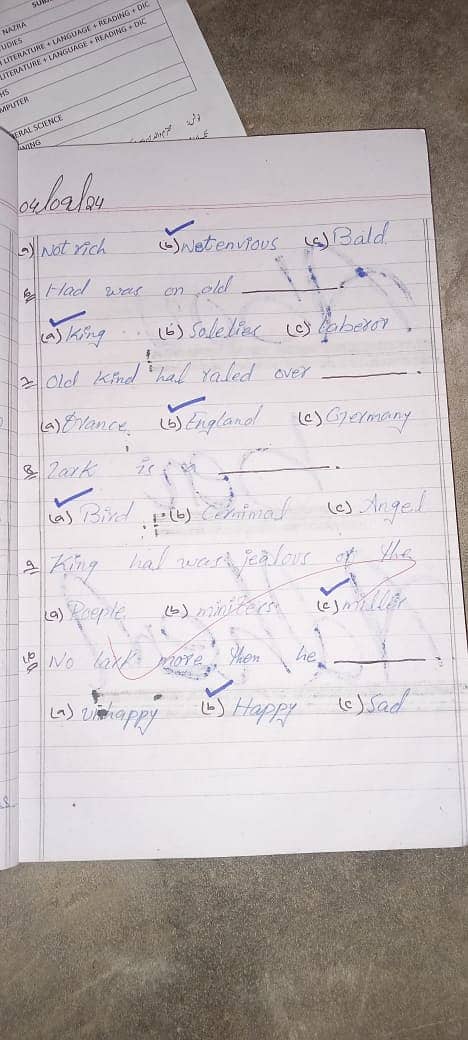 NAZRA
UDIES
LITERATURE + LANGUAGE + READING + DIC
LITERATURE + LANGUAGE + READING + DIC
HS
MPUTER
ERAL SCIENCE
WING
a) Not rich (b) Not envious (c) Bald
6 Had was on old ________.
(a) King (b) Soledies (c) Laberor
7 Old kind hal raled over ________.
(a) France (b) England (c) Germany
8 Lark is a ________.
(a) Bird (b) Cenimal (c) Angel
9 King hal was jealous of the
(a) Poeple (b) miniters (c) miller
10 No lark more then he ________.
(a) Unhappy (b) Happy (c) Sad